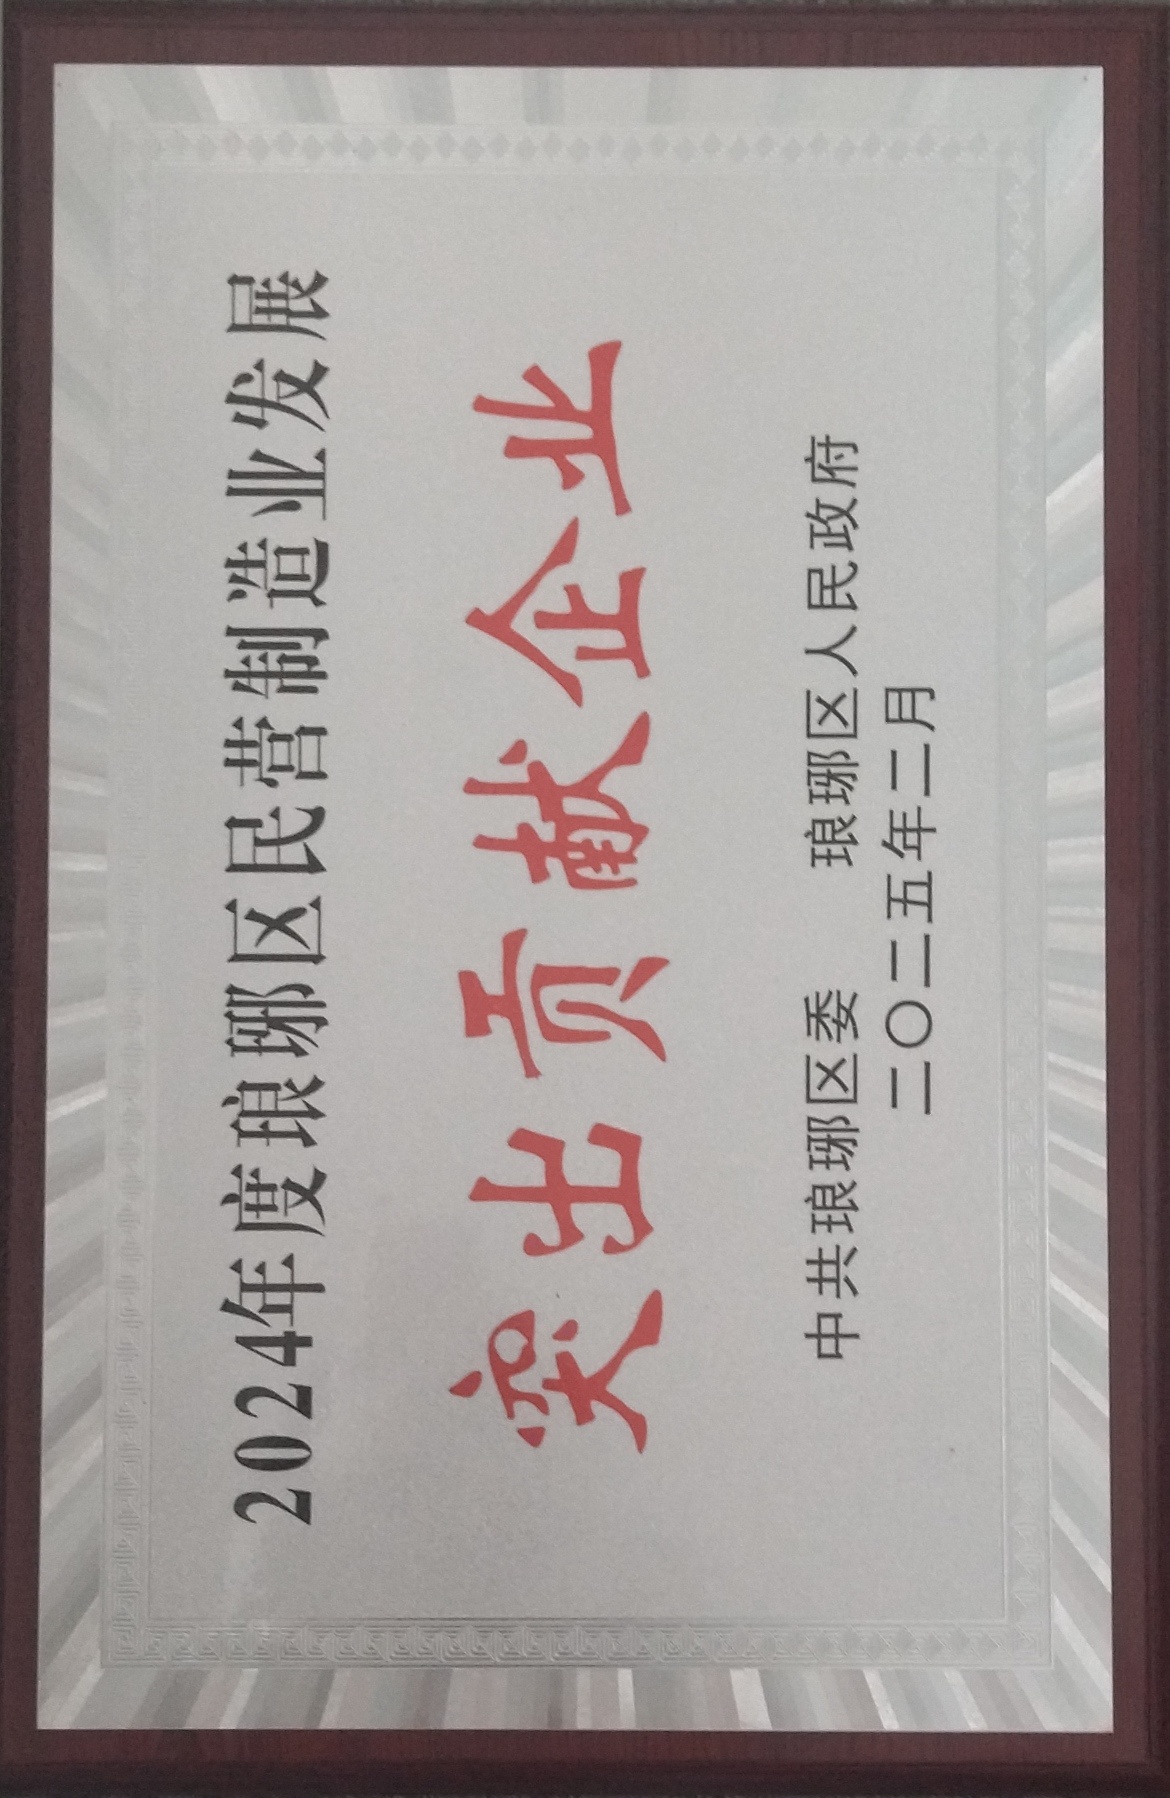 2024年度琅琊区民营制造业发展
突出贡献企业
中共琅琊区委 琅琊区人民政府
二〇二五年二月